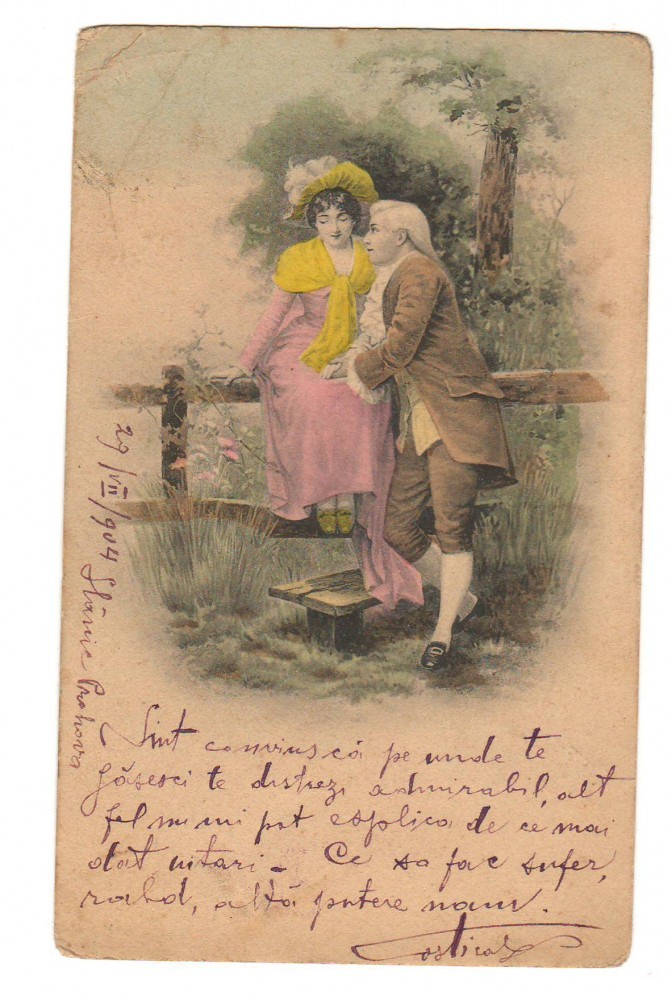 29/VII/904 Slănic Prahova
Sint convins că pe unde te
găsesci te distrezi admirabil, alt
fel nu mi pot esplica de ce mai
dat uitari – Ce sa fac sufer,
rabd, altă putere nam.